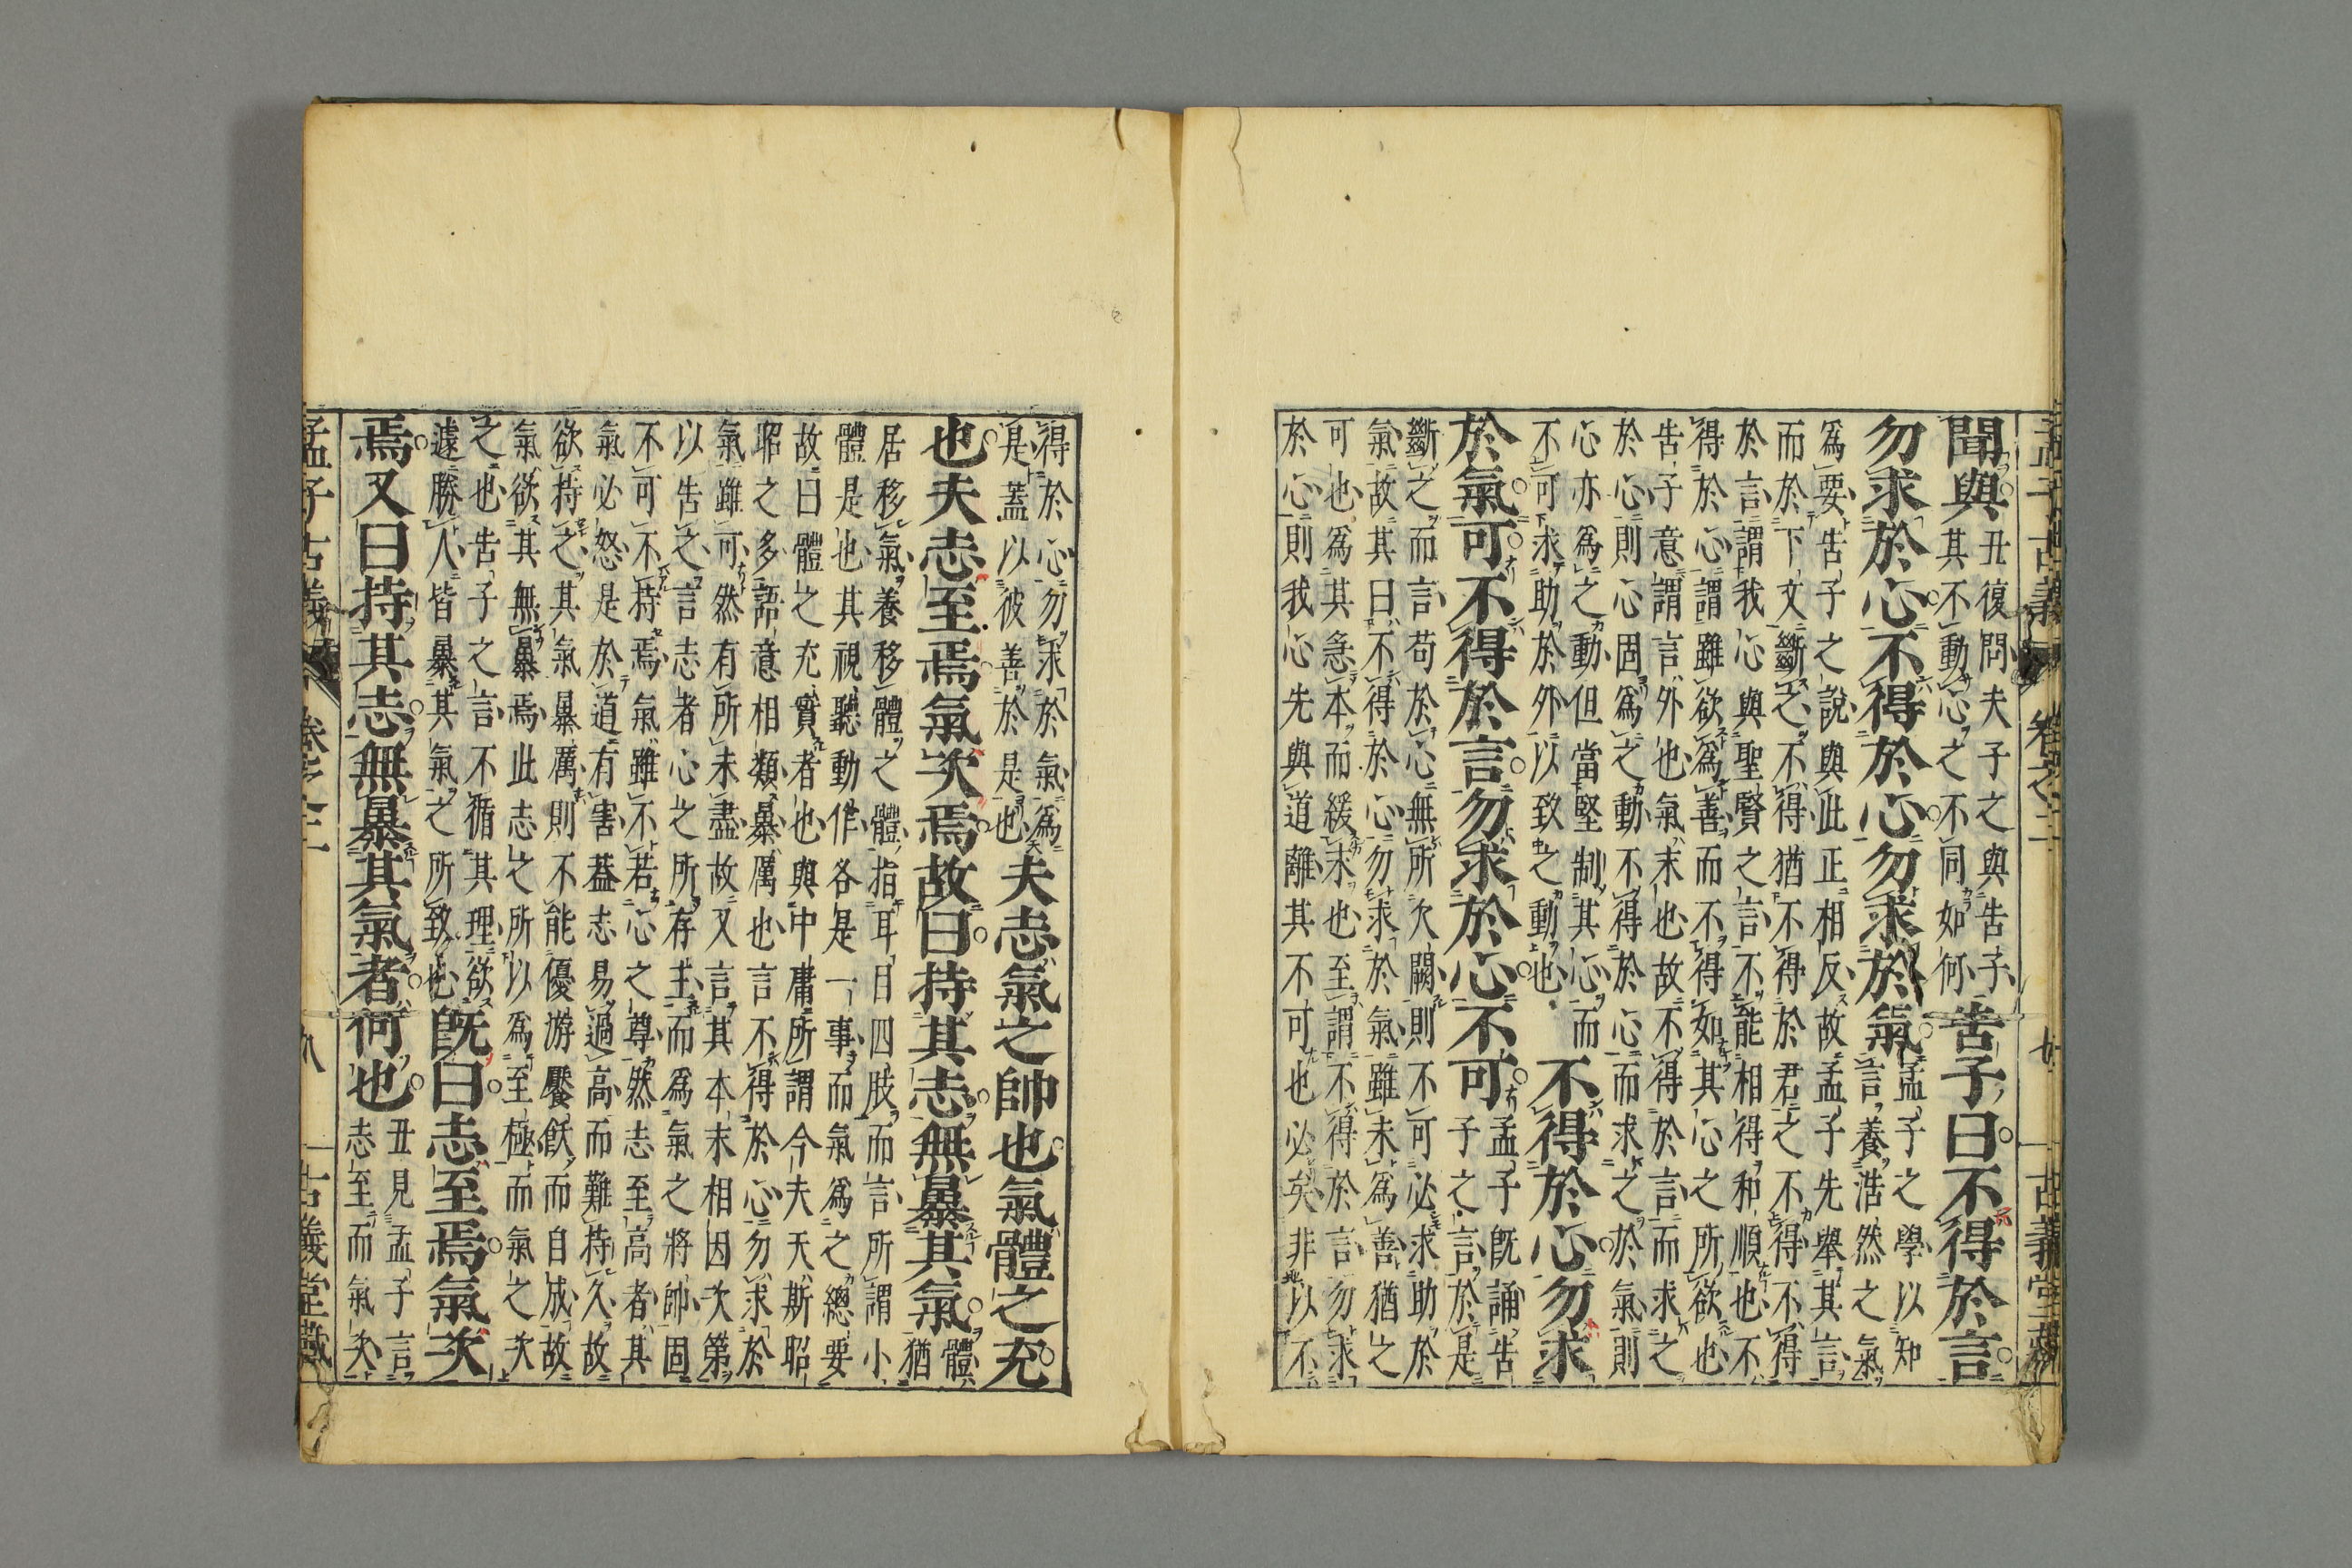 孟子古義 卷之二 七 古義堂藏
聞與
丑復問夫子之與告子
其不動心之不同如何
告子曰不得於言
勿求於心不得於心勿求於氣
孟子之學以知
言養浩然之氣
爲要告子之說與此正相反故孟子先舉其言
而於下文斷之不得猶不得於君之不得不得
於言謂我心與聖賢之言不能相得和順也不
得於心謂雖欲爲善而不得如其心之所欲也
告子意謂言外也氣末也故不得於言而求之
於心則心固爲之動不得於心而求之於氣則
心亦爲之動但當堅制其心而
不可求助於外以致之動也
不得於心勿求
於氣可不得於言勿求於心不可
孟子既誦告
子之言於是
斷之而言苟於心無所欠闕則不可必求助於
氣故其曰不得於心勿求於氣雖未爲善猶之
可也爲其急本而緩末也至謂不得於言勿求
於心則我心先與道離其不可也必矣非以不
得於心勿求於氣爲
是蓋以彼善於是也
夫志氣之帥也氣體之充
也夫志至焉氣次焉故曰持其志無暴其氣
體
猶
居移氣養移體之體指耳目四肢而言所謂小
體是也其視聽動作各是一事而氣爲之總要
故曰體之充實者也與中庸所謂今夫天斯昭
昭之多語意相類暴厲也言不得於心勿求於
氣雖可然有所未盡故又言其本末相因次第
以告之言志者心之所存主而爲氣之將帥固
不可不持焉氣雖不若心之尊然志至高者其
氣必怒是於道有害蓋志易過高而難持久故
欲持之其氣暴厲則不能優游饜飫而自成故
氣欲其無暴焉此志之所以爲至極而氣之次
之也告子之言不循其理欲
遽勝人皆暴其氣之所致也
既曰志至焉氣次
焉又曰持其志無暴其氣者何也
丑見孟子言
志至而氣次
孟子古義 卷之二 八 古義堂藏